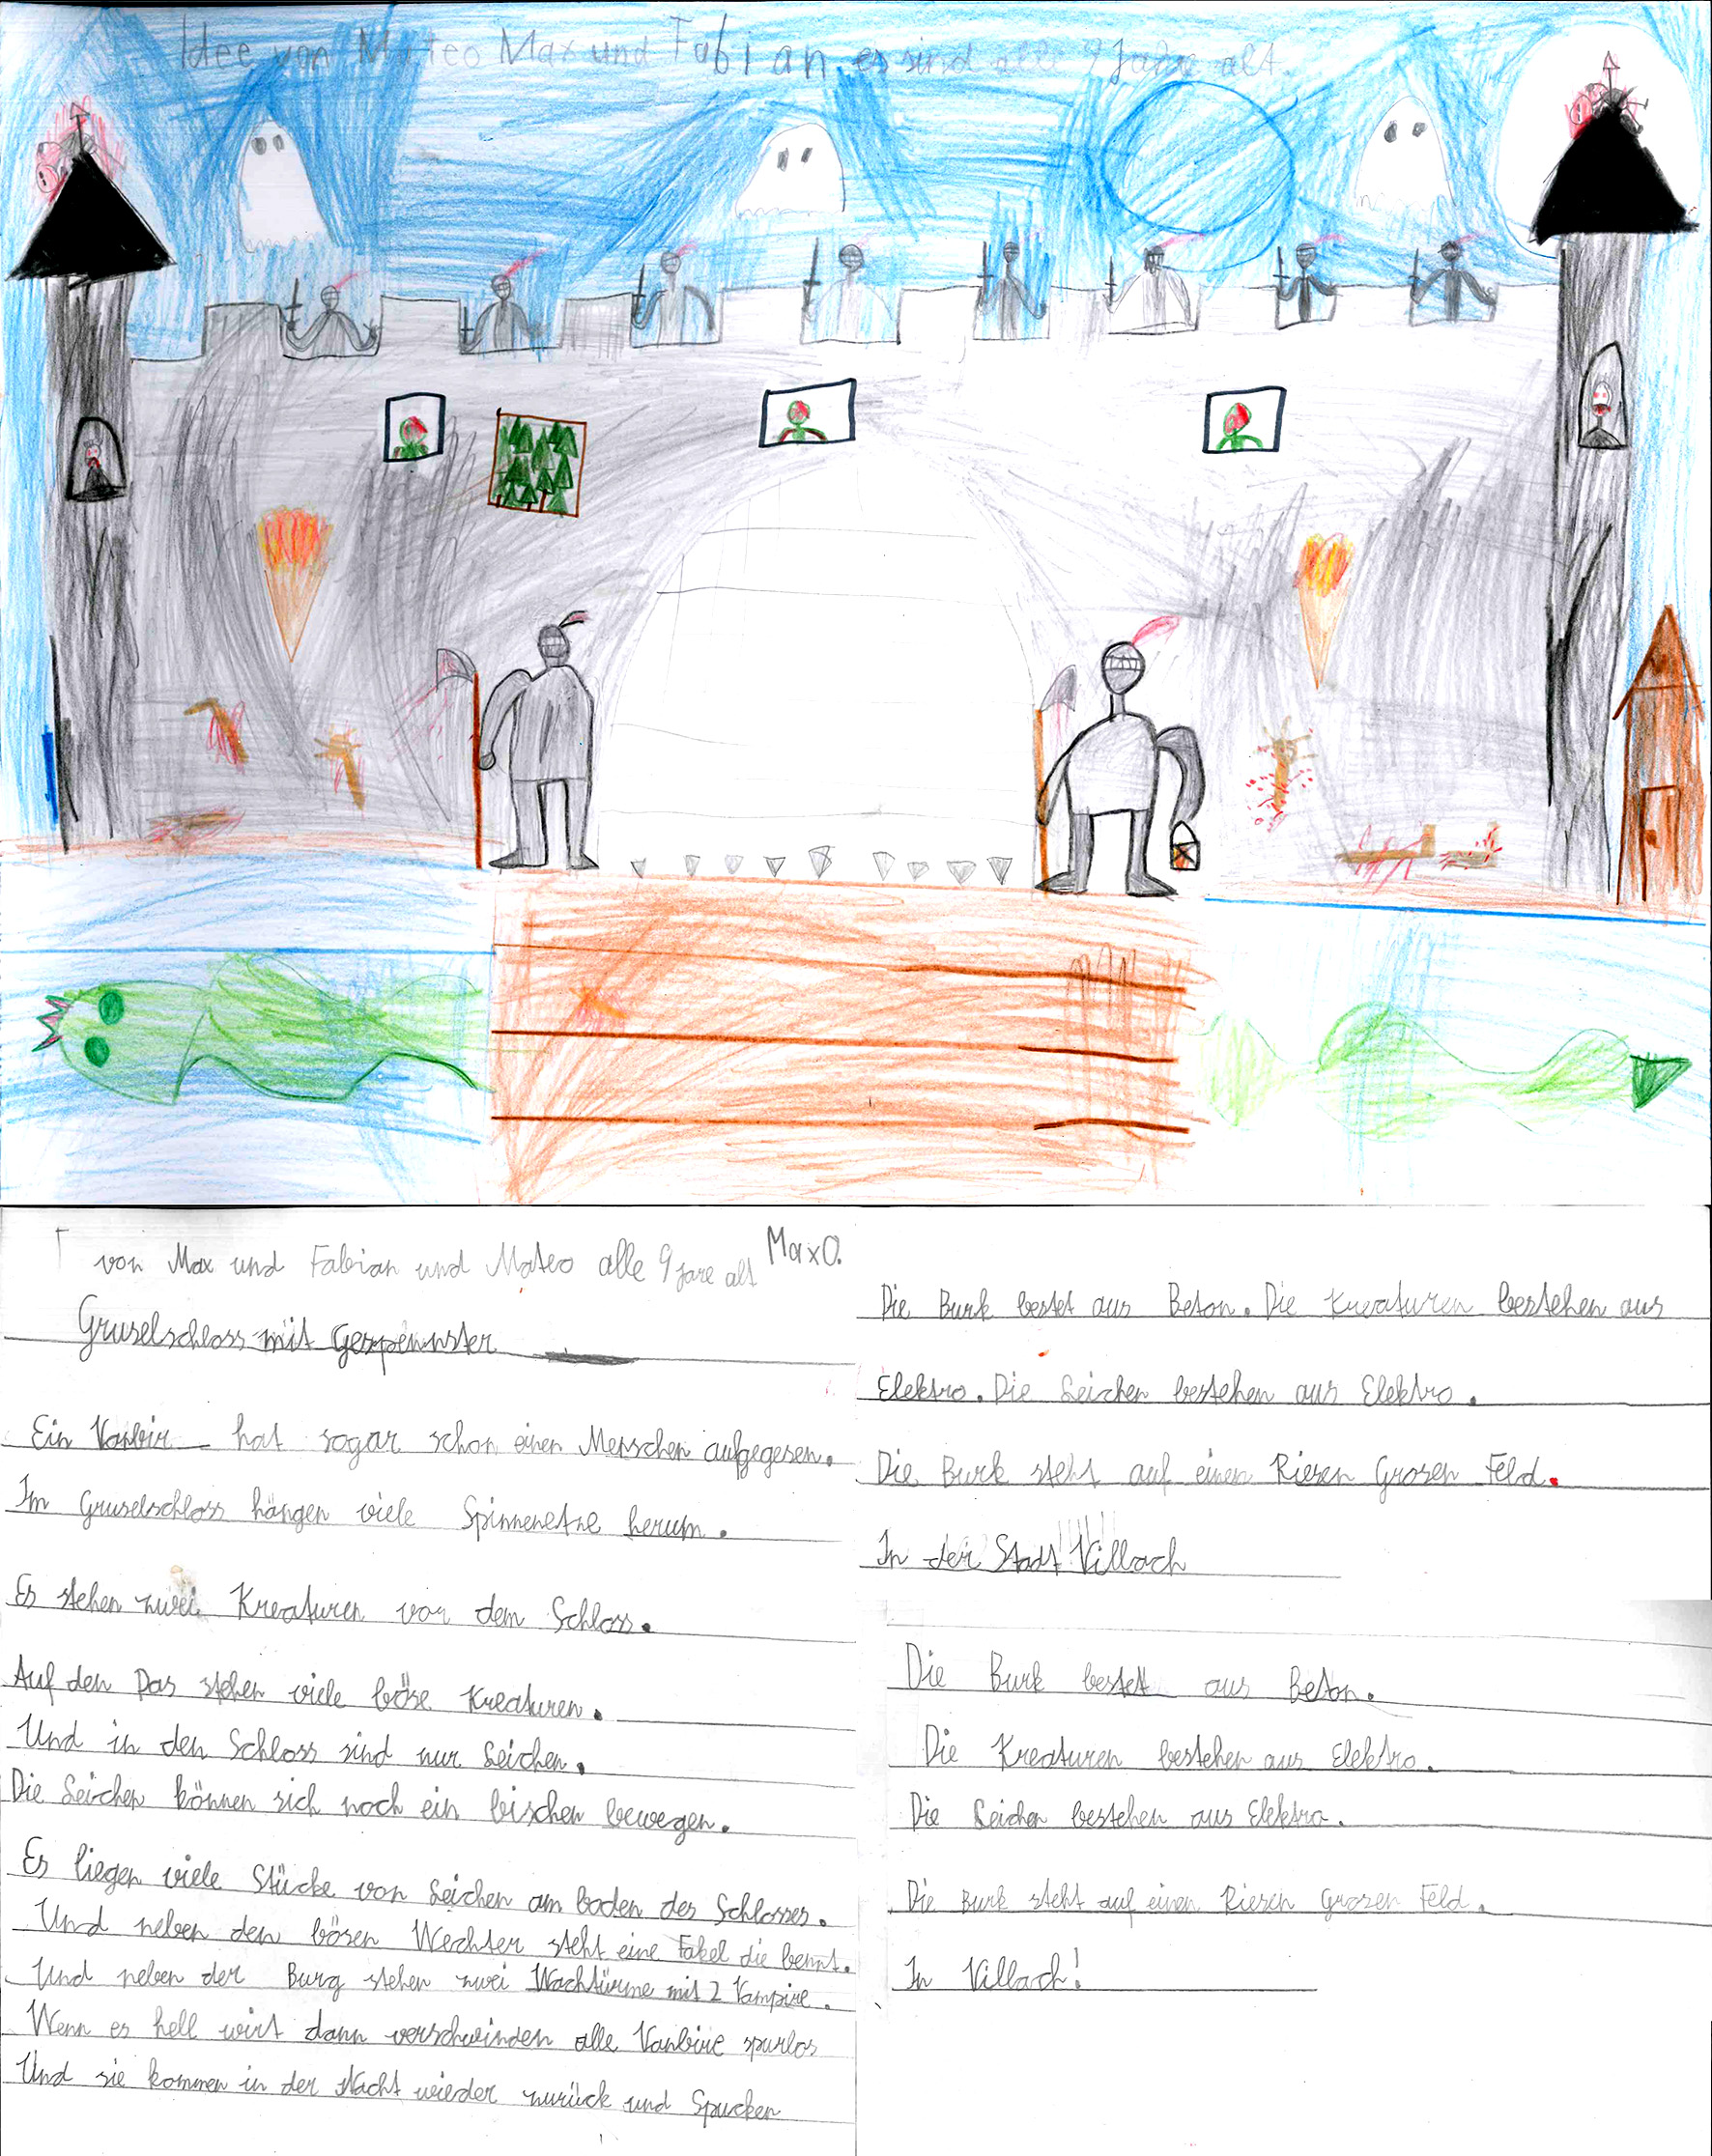 Idee von Mateo Max und Fabian es sind alle 9 Jahre alt.
von Max und Fabian und Mateo alle 9 jare alt
MaxO.
Gruselschloss mit Gespennster
Ein Vanbir hat sogar schon einen Menschen aufgegesen.
Im Gruselschloss hängen viele Spinnenetze herum.
Es stehen zwei Kreaturen vor dem Schloss.
Auf den Das stehen viele böse Kreaturen.
Und in den Schloss sind nur Leichen.
Die Leichen können sich noch ein bischen bewegen.
Es liegen viele Stücke von Leichen am boden des Schlosses.
Und neben den bösen Wechter steht eine Fakel die bennt.
Und neben der Burg stehen zwei Wachtürme mit 2 Vampire.
Wenn es hell wirt dann verschwinden alle Vanbire spurlos
Und sie kommen in der Nacht wieder zurück und Spucken
Die Burk bestet aus Beton. Die Kreaturen bestehen aus
Elektro. Die Leichen bestehen aus Elektro.
Die Burk steht auf einen Riesen Grosen Feld.
In der Stadt Villach
Die Burk bestet aus Beton.
Die Kreaturen bestehen aus Elektro.
Die Leichen bestehen aus Elektro.
Die Burk steht auf einen Riesen Grosen Feld.
In Villach!